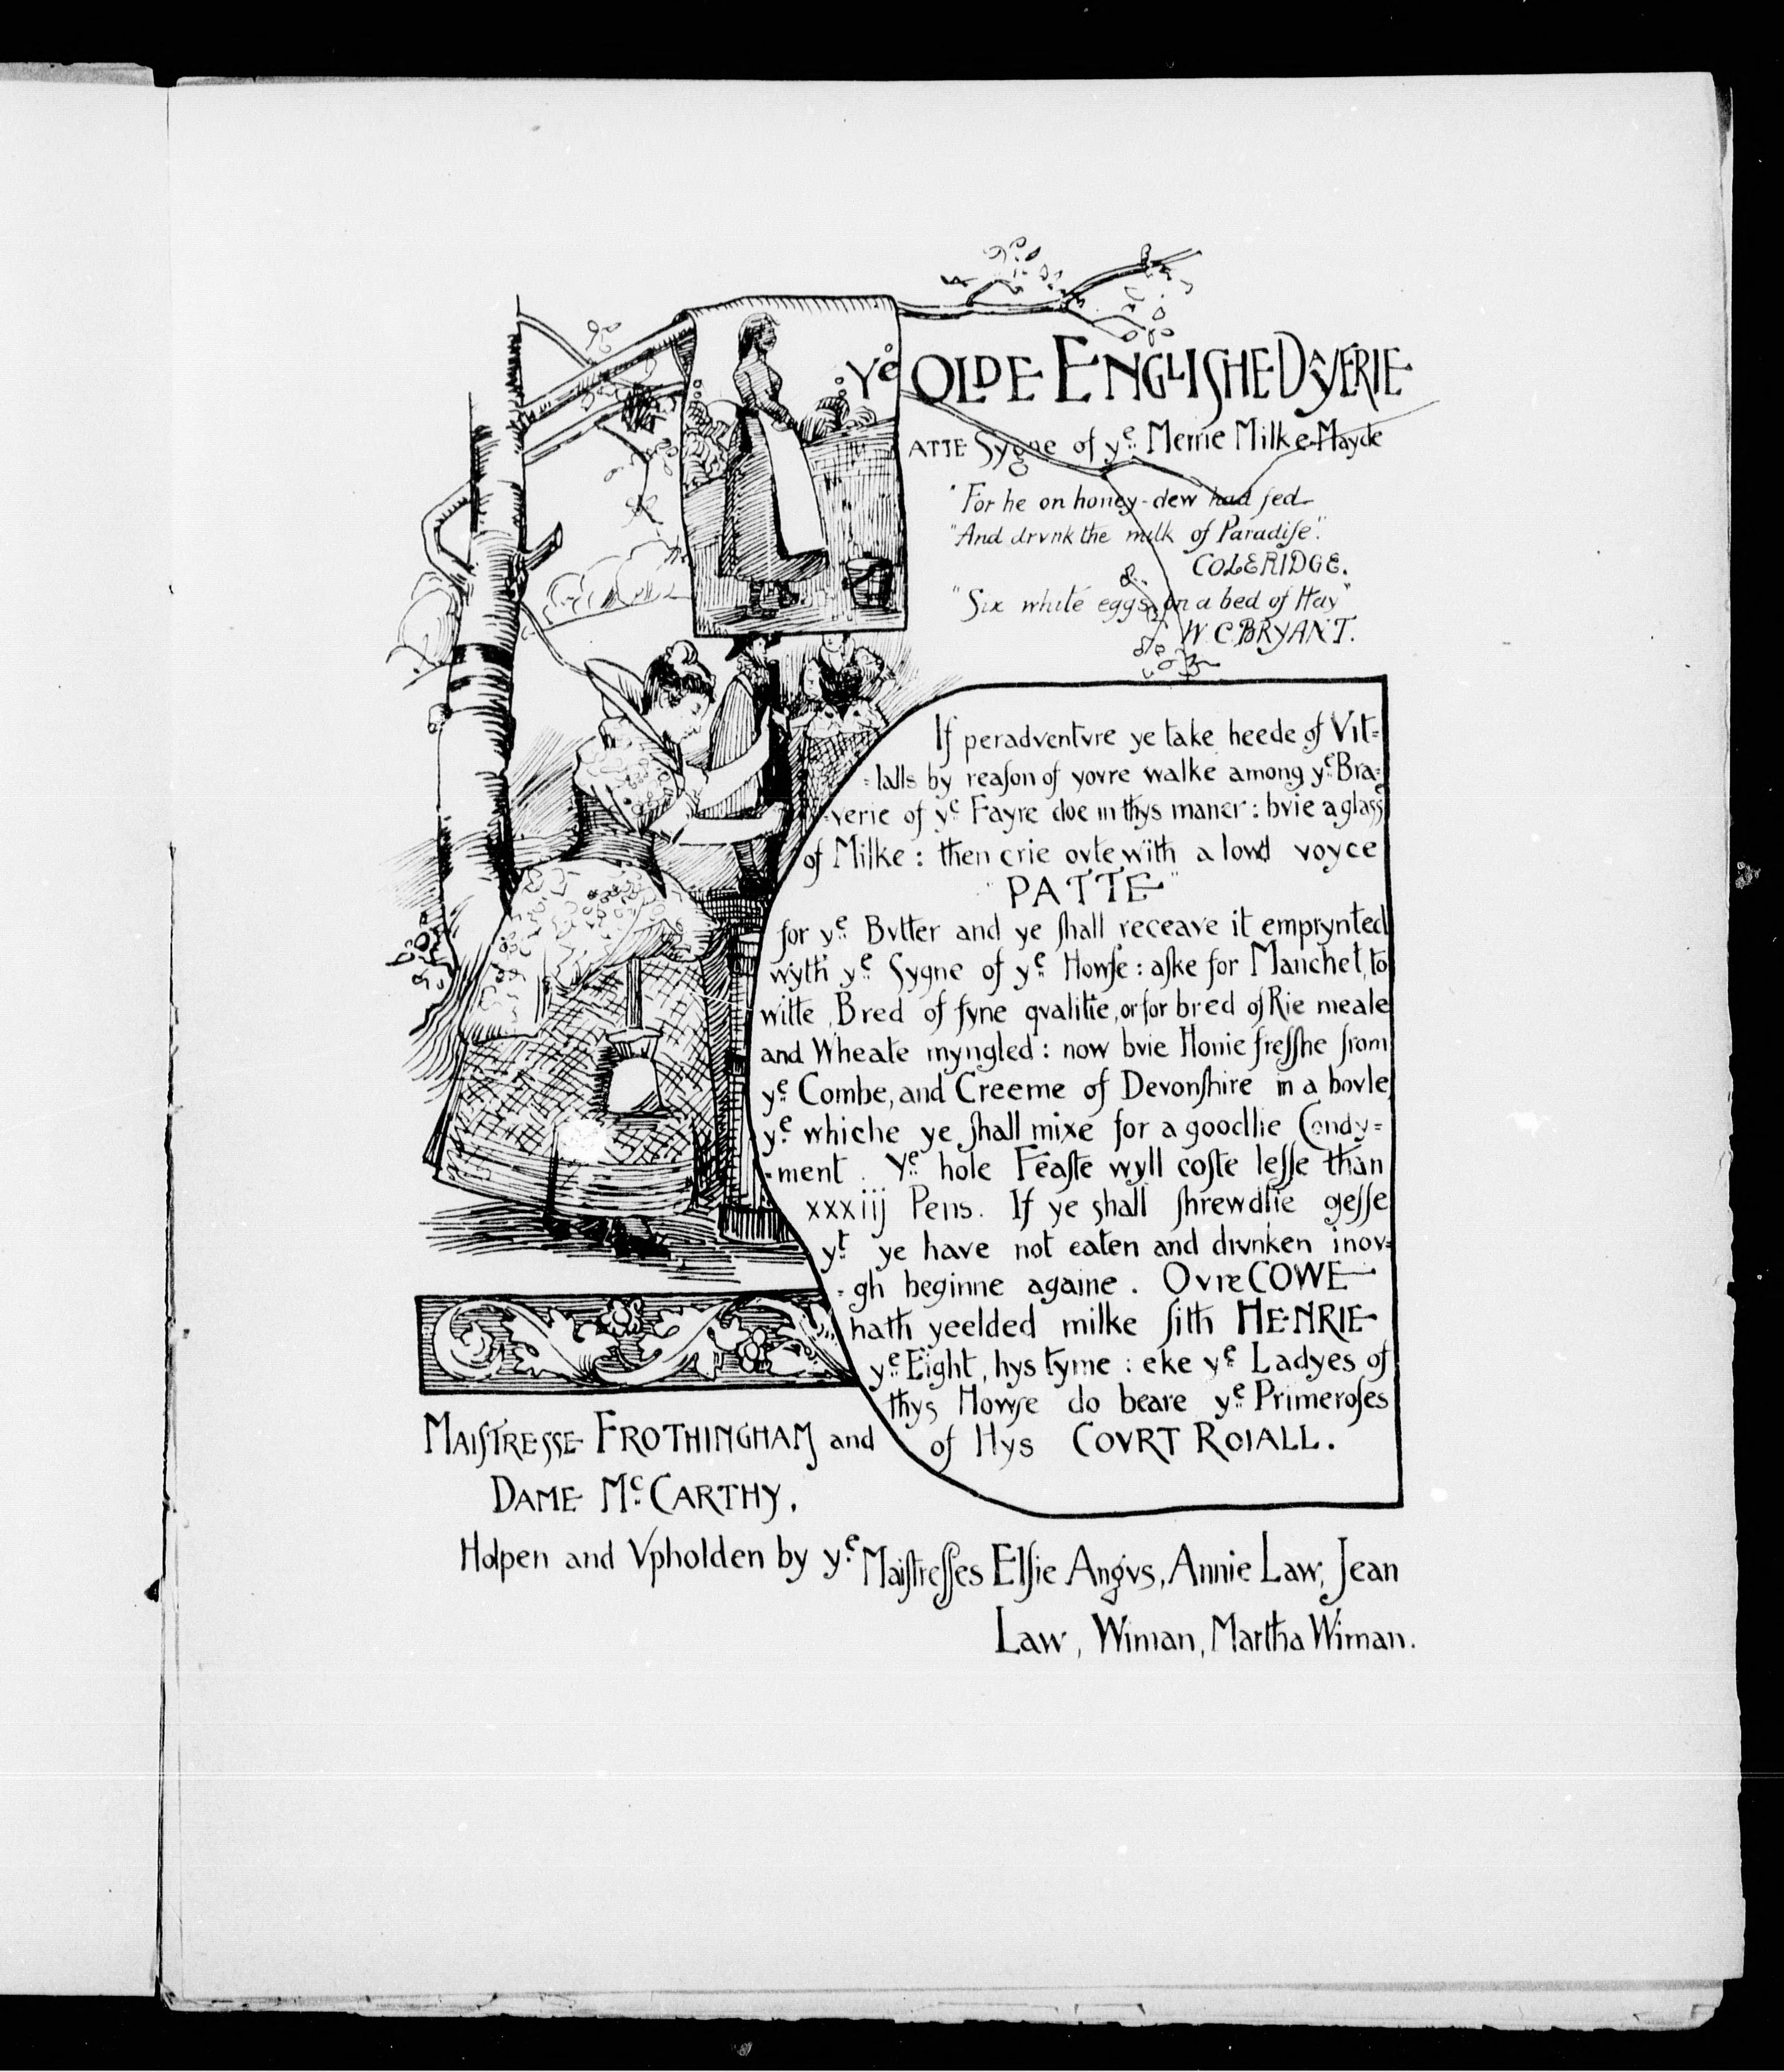 Ye OLDE ENGLISHE DAYERIE
ATTE Sygne of ye Merrie Milke-Mayde
"For he on honey-dew had fed
"And drvnk the milk of Paradiſe".
COLERIDGE.
&
"Six white eggs on a bed of Hay"
W C BRYANT.
If peradventvre ye take heede of Vit=
=lalls by reaſon of yovre walke among ye Bra=
=verie of ye Fayre doe in thys maner: bvie a glass
of Milke: then crie ovte with a lowd voyce
"PATTE"
for ye Bvtter and ye ſhall receave it emprynted
wyth ye Sygne of ye Howſe: aſke for Manchet, to
witte, Bred of fyne qvalitie, or for bred of Rie meale
and Wheate myngled: now bvie Honie freſſhe from
ye Combe, and Creeme of Devonſhire in a bovle
ye whiche ye ſhall mixe for a goodlie Condy=
=ment. Ye hole Feaſte wyll coſte leſſe than
xxxiij Pens. If ye shall ſhrewdlie geſſe
yt ye have not eaten and drvnken inov=
=gh beginne againe. Ovre COWE
hath yeelded milke ſith HENRIE
ye Eight, hys tyme: eke ye Ladyes of
thys Howſe do beare ye Primeroſes
of Hys COVRT ROIALL.
MAIſTRESSE FROTHINGHAM and
DAME Mc CARTHY.
Holpen and Vpholden by ye Maiſtreſſes Elſie Angvs, Annie Law, Jean
Law, Wiman, Martha Wiman.